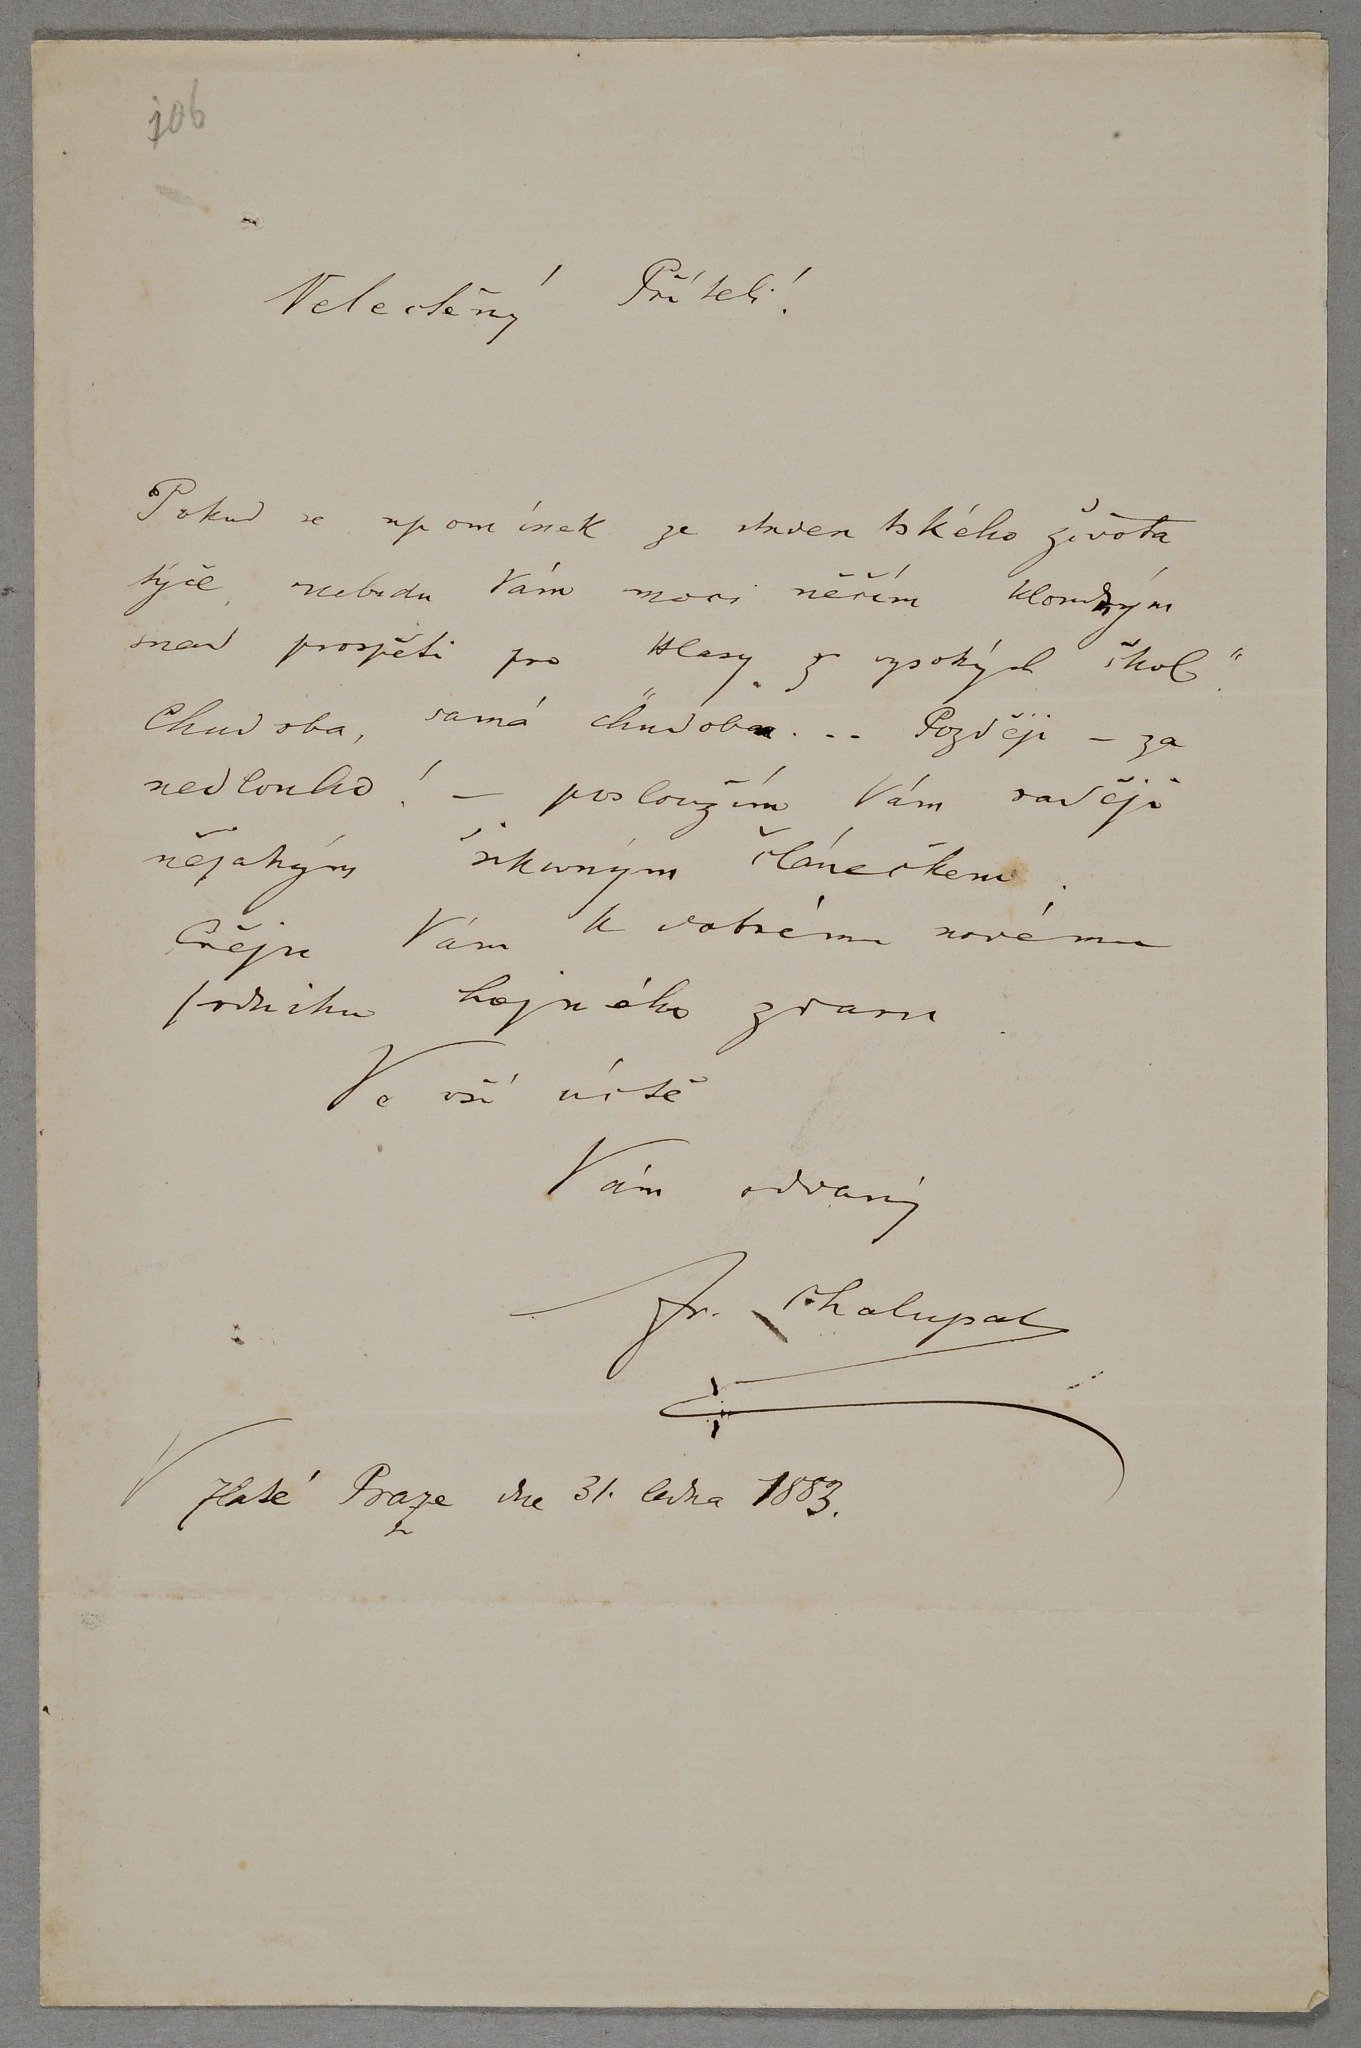 106
Velectěný Příteli!
Pokud se upomínek ze studentského života
týče, nebudu Vám moci něčím kloudným
snad prospěti pro Hlasy z vysokých škol".
Chudoba, samá chudoba... Později – za
nedlouho! – posloužím Vám raději
nějakým šikovným článečkem.
Přeju Vám k dobrému novému
podniku hojného zdaru.
Ve vší úctě
Vám oddaný
Fr. Chalupa
V Zlaté Praze dne 31. ledna 1883.